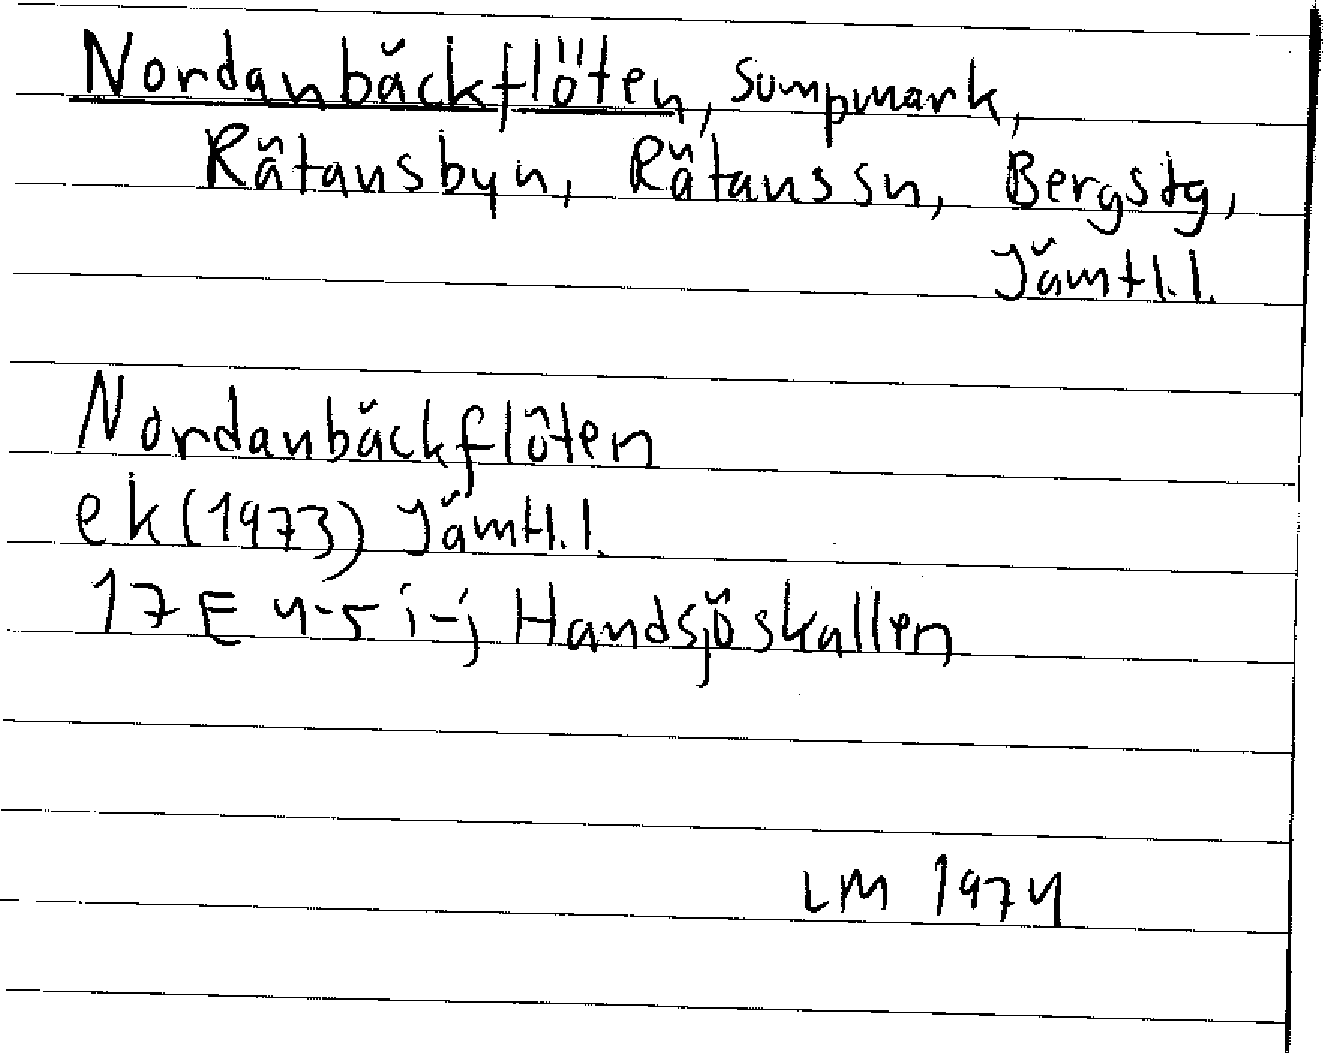 Nordanbäckflöten, Sumpmark,
Rätansbyn, Rätans sn, Bergs tg,
Jämtl. l.
Nordanbäckflöten
ek (1973) Jämtl. l.
17 E 4-5 i-j Handsjöskallen
LM 1974